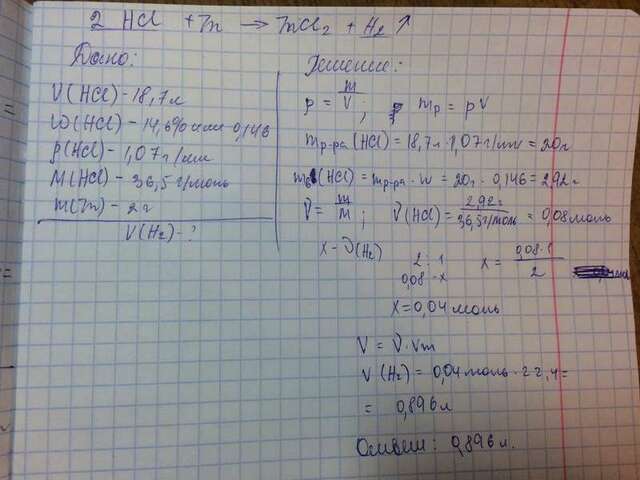 2 HCl + Zn → ZnCl₂ + H₂↑
Дано:
V(HCl) - 18,7 л
W(HCl) - 14,6% или 0,146
ρ(HCl) - 1,07 г/мл
M(HCl) - 36,5 г/моль
m(Zn) - 2 г
V(H₂) - ?
Решение:
ρ = m/V ; mр = ρV
mр-ра (HCl) = 18,7 л · 1,07 г/мл = 20 г
mв (HCl) = mр-ра · w = 20 г · 0,146 = 2,92 г
ν = m/M ; ν(HCl) = 2,92 г / 36,5 г/моль = 0,08 моль
x - ν(H₂)
2 : 1 x = 0,08·1 / 2
0,08 - x
x = 0,04 моль
V = ν · Vm
V(H₂) = 0,04 моль · 22,4 =
= 0,896 л
Ответ: 0,896 л.